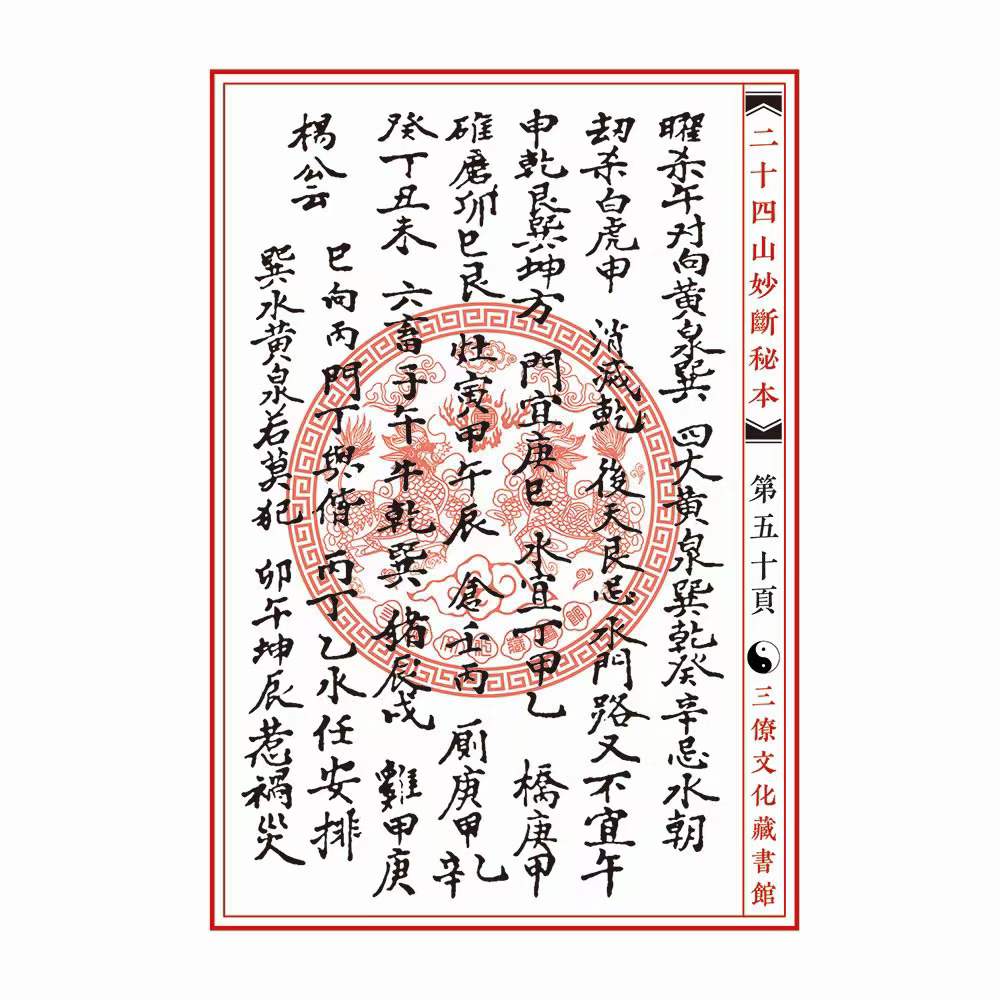 二十四山妙斷秘本
第五十頁
三僚文化藏書館
曜杀午对向黄泉巽 四大黄泉巽乾癸辛忌水朝
劫杀白虎申 消滅乾 後天艮忌水門路又不宜午
申乾艮巽坤方 門宜庚巳 水宜丁甲乙 橋庚甲
碓磨卯巳艮 灶寅甲午辰 倉壬丙 厕庚甲乙辛
癸丁丑未 六畜子午牛乾巽 猪辰戌 雞甲庚
楊公云
巳向丙門丁與偕 丙丁乙水任安排
巽水黄泉若莫犯 卯午坤辰惹禍災